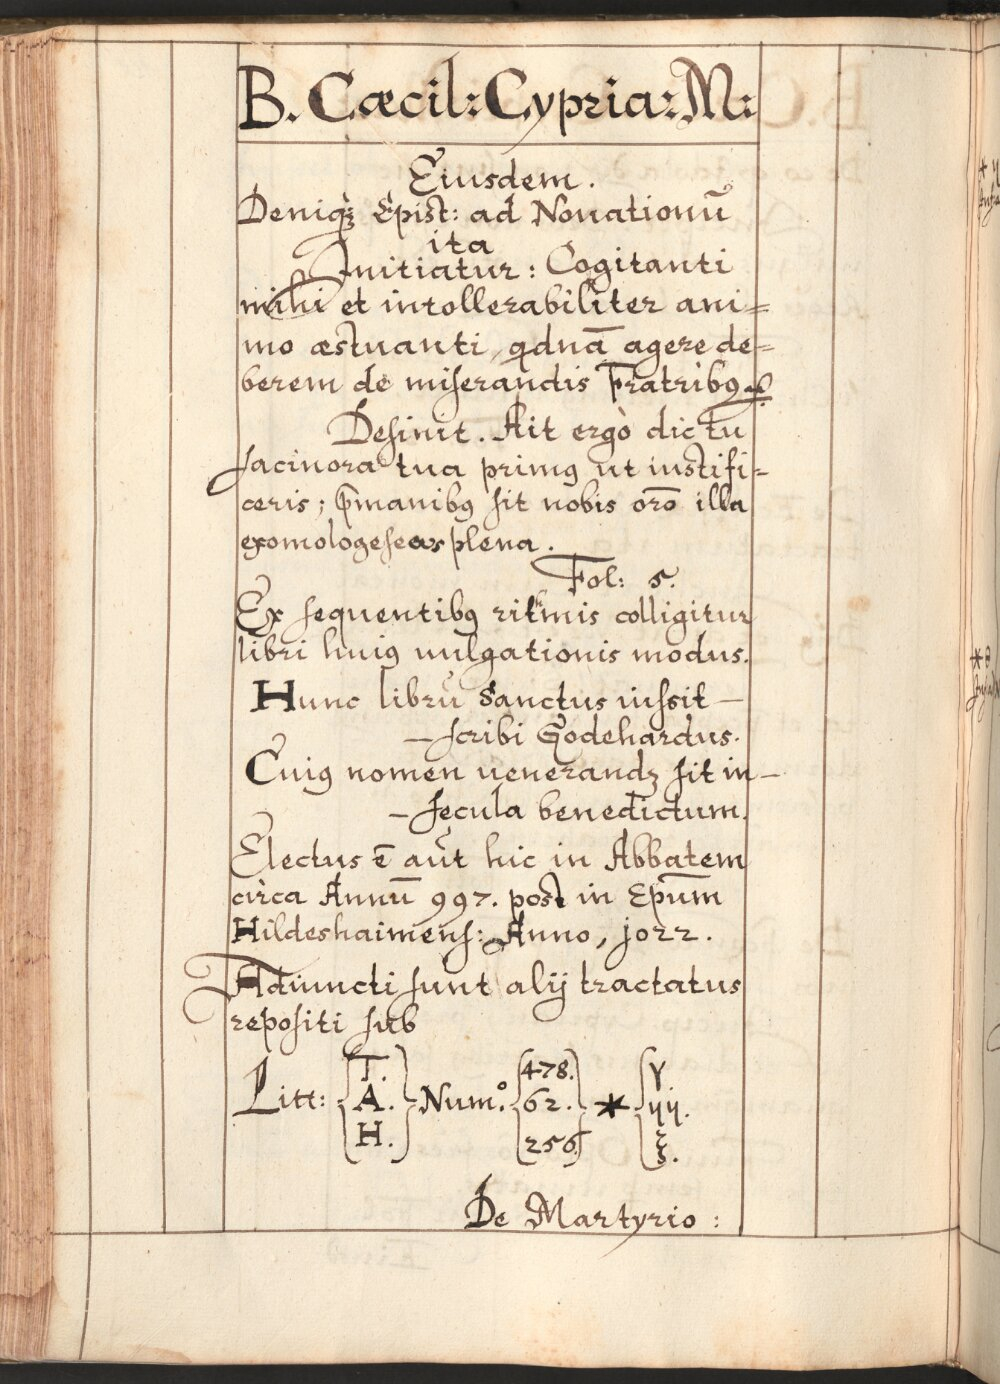 B. Cæcil: Cypria: M:
Eiusdem.
Deniqꝫ Epist: ad Nouationū
ita
Initiatur : Cogitanti
mihi et intollerabiliter ani=
mo æstuanti, qdnā agere de=
berem de miserandis fratribꝯ ⁊c.
Desinit. Ait ergò dic tu
facinora tua primꝯ ut iustifi=
ceris; p̄manibꝯ sit nobis orō illa
exomologeseos plena.
Fol: 5.
Ex sequentibꝯ rithmis colligitur
libri huiꝯ uulgationis modus.
Hunc librū Sanctus iussit —
— scribi Godehardus.
Cuiꝯ nomen uenerandꝫ sit in —
— secula benedictum.
Electus ē aūt hic in Abbatem
circa Annū 997. post in Ep̄um
Hildeshaimens: Anno, j022.
Adiuncti sunt alij tractatus
repositi sub
Litt: { T. A. H. } Num.º { 478. 62. 256. } * { γ ηη. ξ.
De Martyrio :